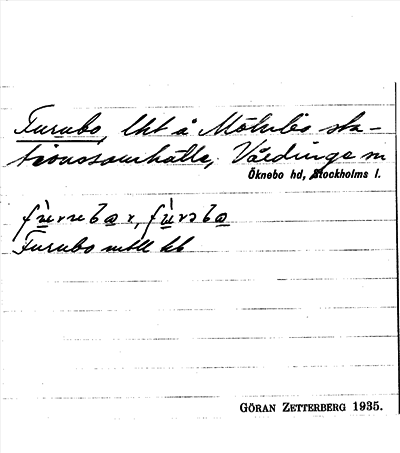 Furubo, lht å Mölnbo sta-
tionssamhälle, Vårdinge sn
Öknebo hd, Stockholms l.
fùrubor, fùrəbo
Furubo mtll kb
GÖRAN ZETTERBERG 1935.